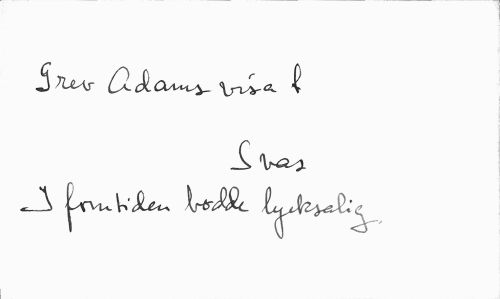 Grev Adams visa
Svar
I forntiden bodde lycksalig